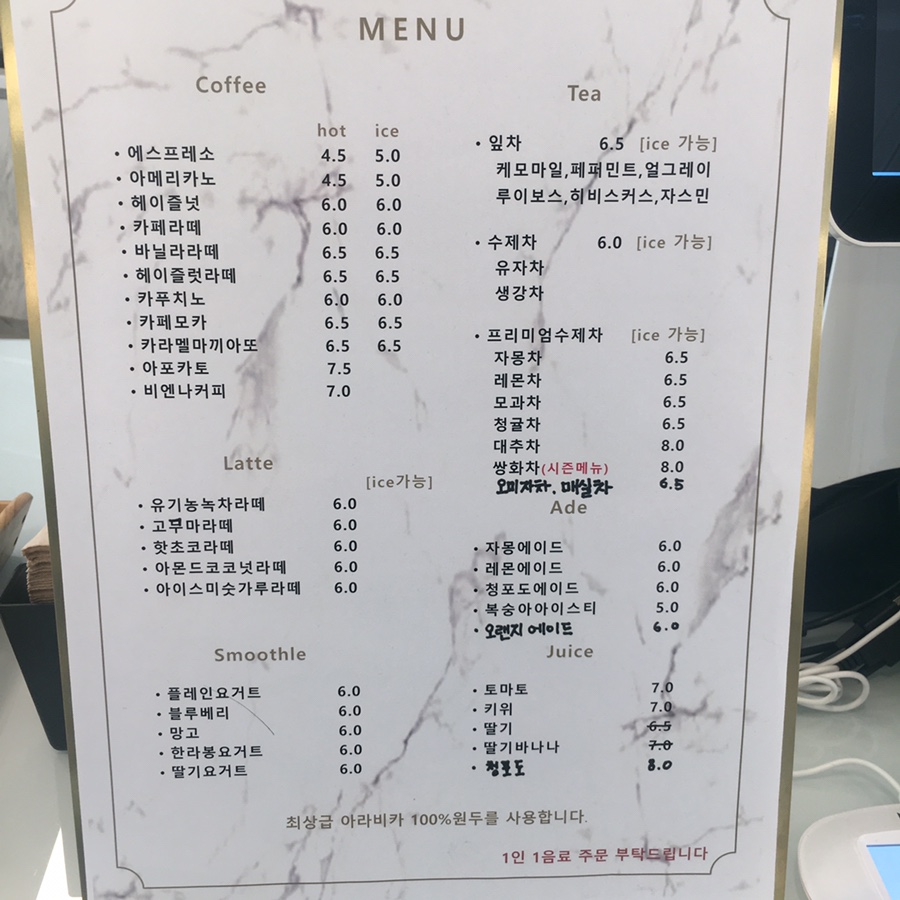 MENU
Coffee
hot ice
• 에스프레소 4.5 5.0
• 아메리카노 4.5 5.0
• 헤이즐넛 6.0 6.0
• 카페라떼 6.0 6.0
• 바닐라라떼 6.5 6.5
• 헤이즐럿라떼 6.5 6.5
• 카푸치노 6.0 6.0
• 카페모카 6.5 6.5
• 카라멜마끼아또 6.5 6.5
• 아포카토 7.5
• 비엔나커피 7.0
Latte
[ice가능]
• 유기농녹차라떼 6.0
• 고무마라떼 6.0
• 핫초코라떼 6.0
• 아몬드코코넛라떼 6.0
• 아이스미숫가루라떼 6.0
Smoothle
• 플레인요거트 6.0
• 블루베리 6.0
• 망고 6.0
• 한라봉요거트 6.0
• 딸기요거트 6.0
Tea
• 잎차 6.5 [ice 가능]
케모마일,페퍼민트,얼그레이
루이보스,히비스커스,자스민
• 수제차 6.0 [ice 가능]
유자차
생강차
• 프리미엄수제차 [ice 가능]
자몽차 6.5
레몬차 6.5
모과차 6.5
청귤차 6.5
대추차 8.0
쌍화차(시즌메뉴) 8.0
오미자차. 매실차 6.5
Ade
• 자몽에이드 6.0
• 레몬에이드 6.0
• 청포도에이드 6.0
• 복숭아아이스티 5.0
• 오랜지 에이드 6.0
Juice
• 토마토 7.0
• 키위 7.0
• 딸기 6.5
• 딸기바나나 7.0
• 청포도 8.0
최상급 아라비카 100%원두를 사용합니다.
1인 1음료 주문 부탁드립니다